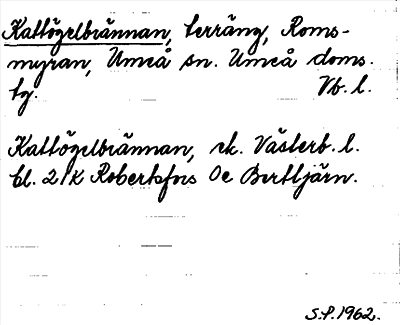 Kattögelbrännan, terräng, Roms-
myran, Umeå sn. Umeå doms.
tg. Vb. l.
Kattögelbrännan, ek. Västerb. l.
bl. 21K Robertsfors 0e Berttjärn.
S.P. 1962.